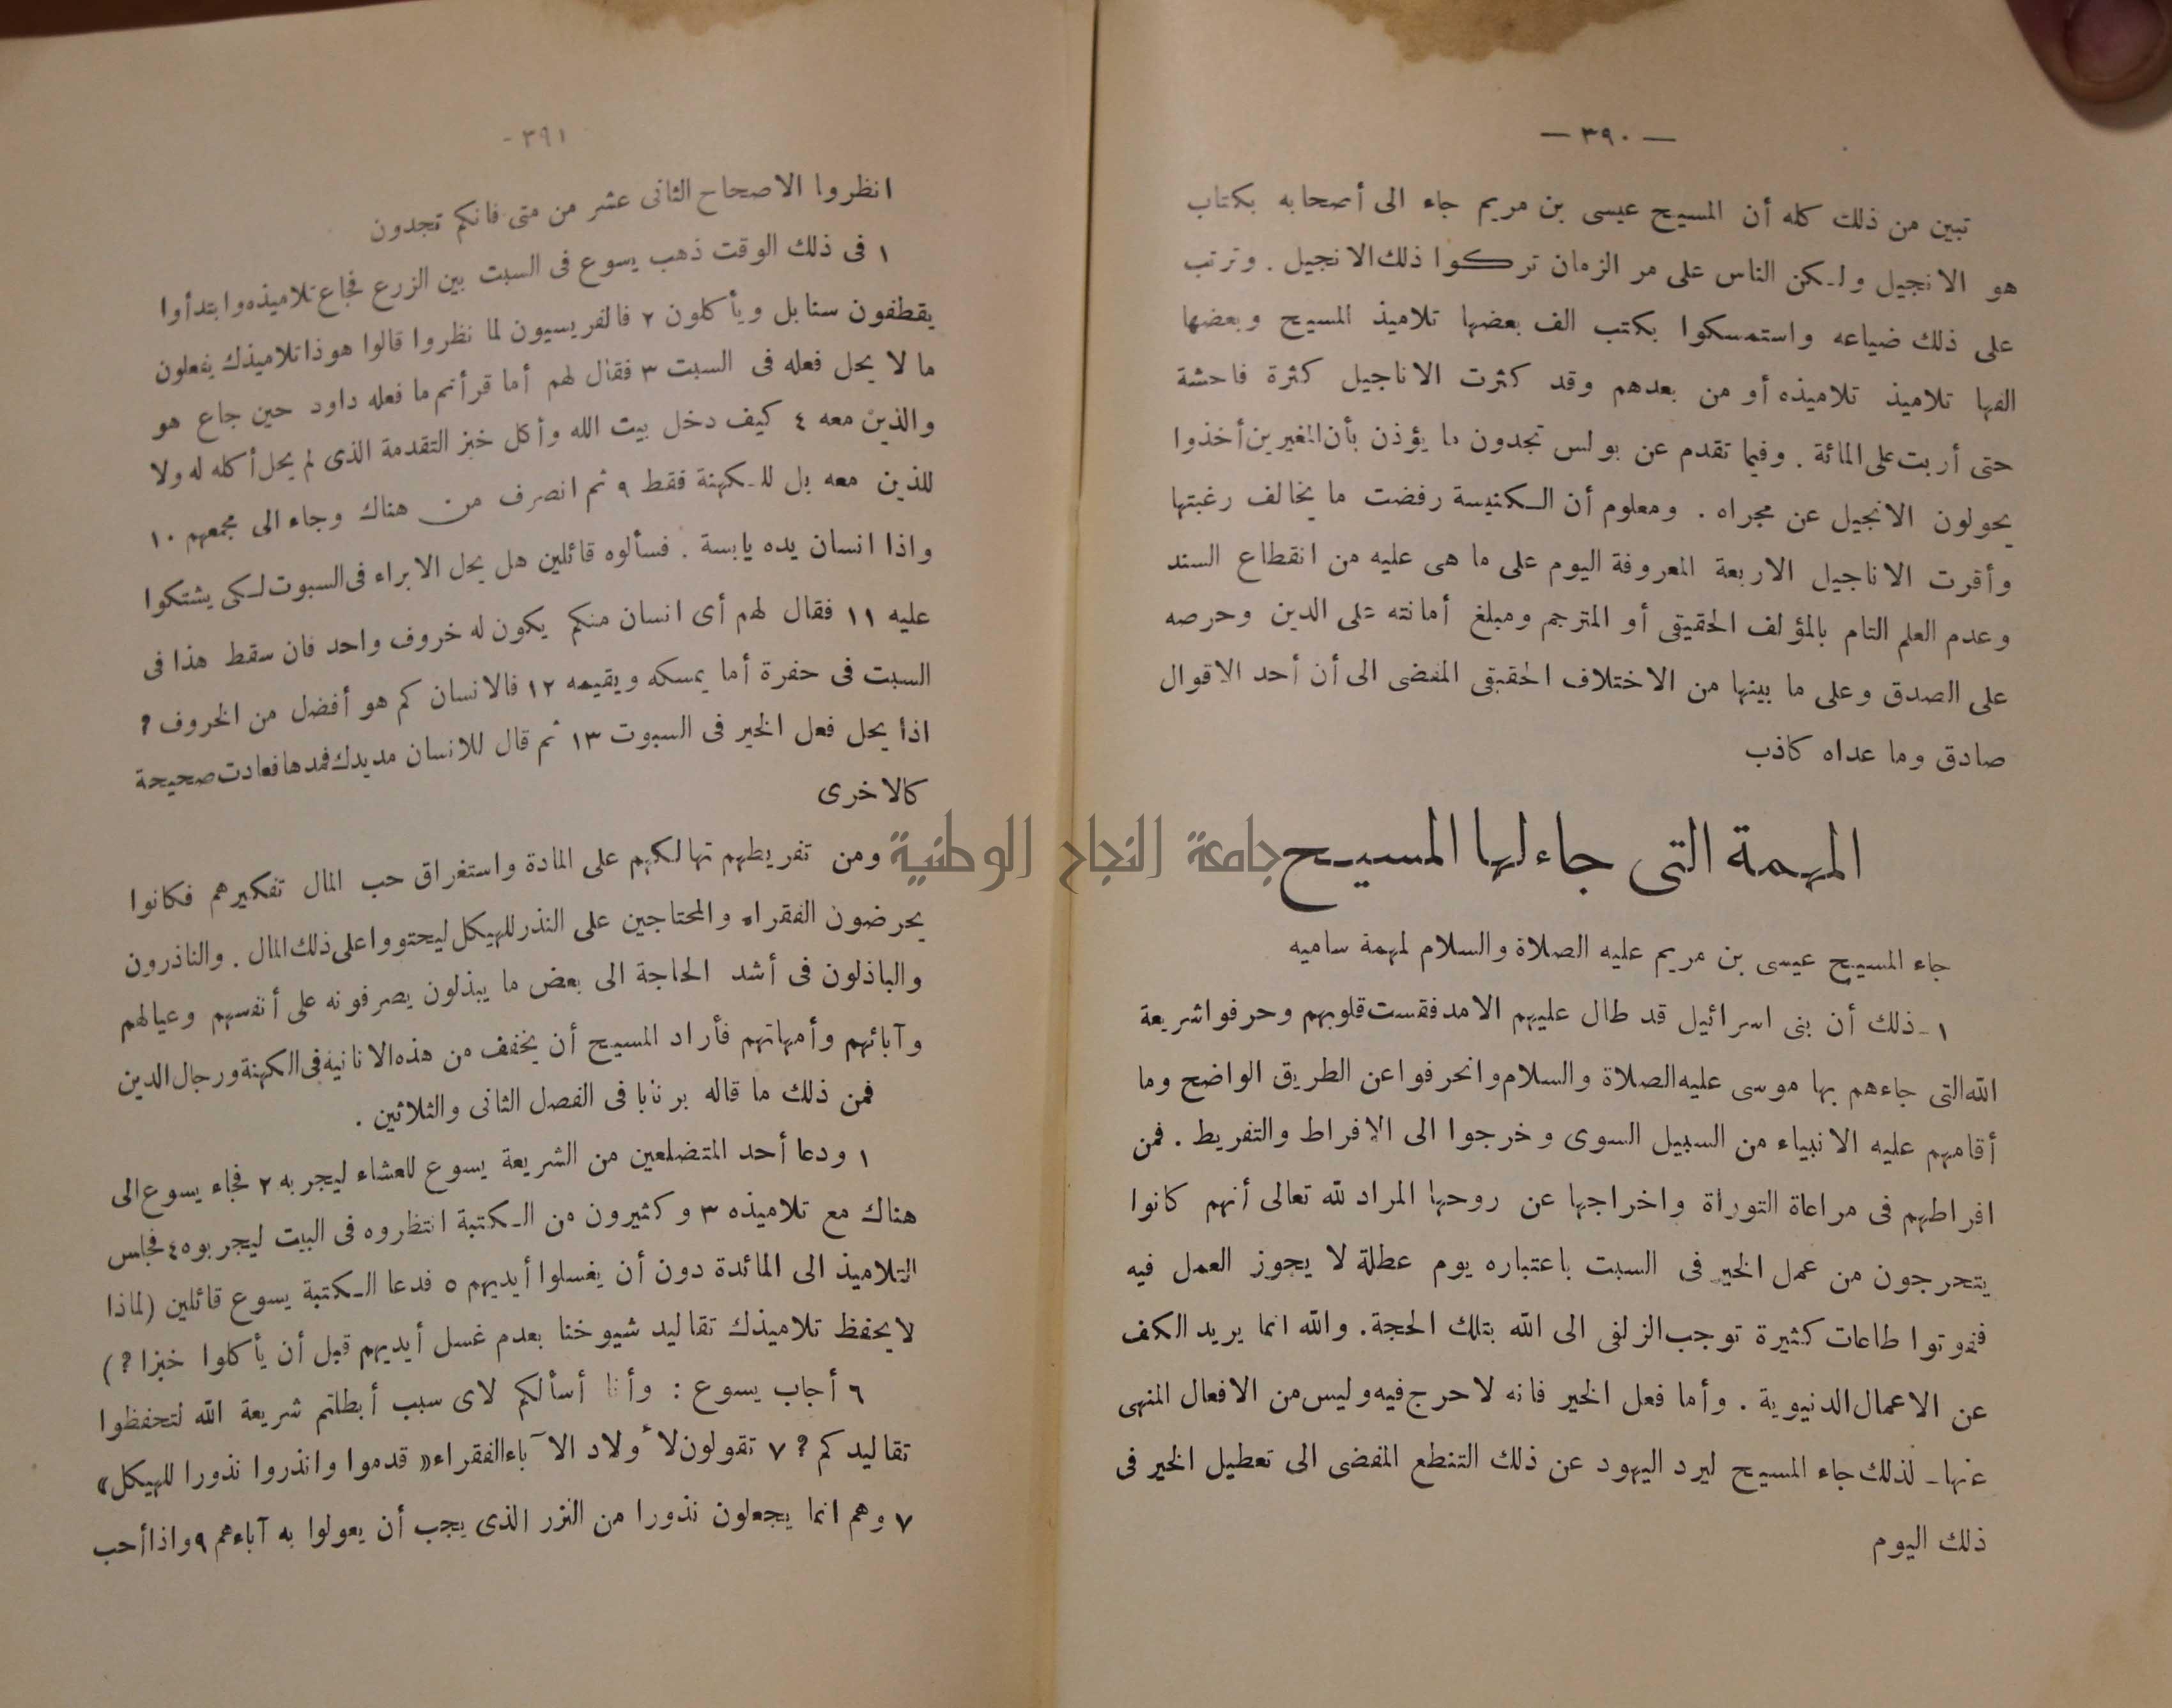 — ٣٩٠ —
تبين من ذلك كله أن المسيح عيسى بن مريم جاء الى أصحابه بكتاب
هو الانجيل ولكن الناس على مر الزمان تركوا ذلك الانجيل . وترتب
على ذلك ضياعه واستمسكوا بكتب الف بعضها تلاميذ المسيح وبعضها
الفها تلاميذ تلاميذه أو من بعدهم وقد كثرت الاناجيل كثرة فاحشة
حتى أربت على المائة . وفيما تقدم عن بولس تجدون ما يؤذن بأن المغيرين أخذوا
يحولون الانجيل عن مجراه . ومعلوم أن الكنيسة رفضت ما يخالف رغبتها
وأقرت الاناجيل الاربعة المعروفة اليوم على ما هى عليه من انقطاع السند
وعدم العلم التام بالمؤلف الحقيقى أو المترجم ومبلغ أمانته على الدين وحرصه
على الصدق وعلى ما بينها من الاختلاف الحقيقى المفضى الى أن أحد الاقوال
صادق وما عداه كاذب
المهمة التى جاء لها المسيح
جامعة النجاح الوطنية
جاء المسيح عيسى بن مريم عليه الصلاة والسلام لمهمة ساميه
١ـ ذلك أن بنى اسرائيل قد طال عليهم الامد فقست قلوبهم وحرفوا شريعة
الله التى جاءهم بها موسى عليه الصلاة والسلام وانحرفوا عن الطريق الواضح وما
أقامهم عليه الانبياء من السبيل السوى وخرجوا الى الافراط والتفريط . فمن
افراطهم فى مراعاة التوراة واخراجها عن روحها المراد لله تعالى أنهم كانوا
يتحرجون من عمل الخير فى السبت باعتباره يوم عطلة لا يجوز العمل فيه
ففوتوا طاعات كثيرة توجب الزلفى الى الله بتلك الحجة. والله انما يريد الكف
عن الاعمال الدنيوية . وأما فعل الخير فانه لا حرج فيه وليس من الافعال المنهى
عنها ـ لذلك جاء المسيح ليرد اليهود عن ذلك التنطع المفضى الى تعطيل الخير فى
ذلك اليوم
٣٩١ -
انظروا الاصحاح الثانى عشر من متى فانكم تجدون
١ فى ذلك الوقت ذهب يسوع فى السبت بين الزرع فجاع تلاميذه وابتدأوا
يقطفون سنابل ويأكلون ٢ فالفريسيون لما نظروا قالوا هوذا تلاميذك يفعلون
ما لا يحل فعله فى السبت ٣ فقال لهم أما قرأتم ما فعله داود حين جاع هو
والذين معه ٤ كيف دخل بيت الله وأكل خبز التقدمة الذى لم يحل أكله له ولا
للذين معه بل للكهنة فقط ٩ ثم انصرف من هناك وجاء الى مجمعهم ١٠
واذا انسان يده يابسة . فسألوه قائلين هل يحل الابراء فى السبوت لكى يشتكوا
عليه ١١ فقال لهم أى انسان منكم يكون له خروف واحد فان سقط هذا فى
السبت فى حفرة أما يمسكه ويقيمه ١٢ فالانسان كم هو أفضل من الخروف ؟
اذا يحل فعل الخير فى السبوت ١٣ ثم قال للانسان مد يدك فمدها فعادت صحيحة
كالاخرى
ومن تفريطهم تهالكهم على المادة واستغراق حب المال تفكيرهم فكانوا
يحرضون الفقراء والمحتاجين على النذر للهيكل ليحتووا على ذلك المال . والناذرون
والباذلون فى أشد الحاجة الى بعض ما يبذلون يصرفونه على أنفسهم وعيالهم
وآبائهم وأمهاتهم فأراد المسيح أن يخفف من هذه الانانية فى الكهنة ورجال الدين
فمن ذلك ما قاله برنابا فى الفصل الثانى والثلاثين .
١ ودعا أحد المتضلعين من الشريعة يسوع للعشاء ليجربه ٢ فجاء يسوع الى
هناك مع تلاميذه ٣ وكثيرون من الكتبة انتظروه فى البيت ليجربوه ٤ فجلس
التلاميذ الى المائدة دون أن يغسلوا أيديهم ٥ فدعا الكتبة يسوع قائلين (لماذا
لا يحفظ تلاميذك تقاليد شيوخنا بعدم غسل أيديهم قبل أن يأكلوا خبزا ؟)
٦ أجاب يسوع : وأنا أسألكم لاى سبب أبطلتم شريعة الله لتحفظوا
تقاليدكم ؟ ٧ تقولون لأولاد الآباء الفقراء « قدموا وانذروا نذورا للهيكل »
٧ وهم انما يجعلون نذورا من النزر الذى يجب أن يعولوا به آباءهم ٩ واذا أحب